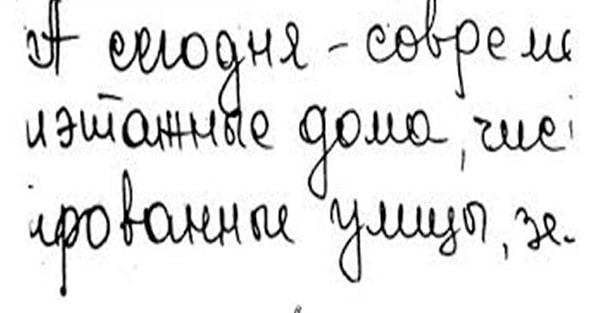 А сегодня - соврем
иэтажные дома, чис
ированные улицы, зе